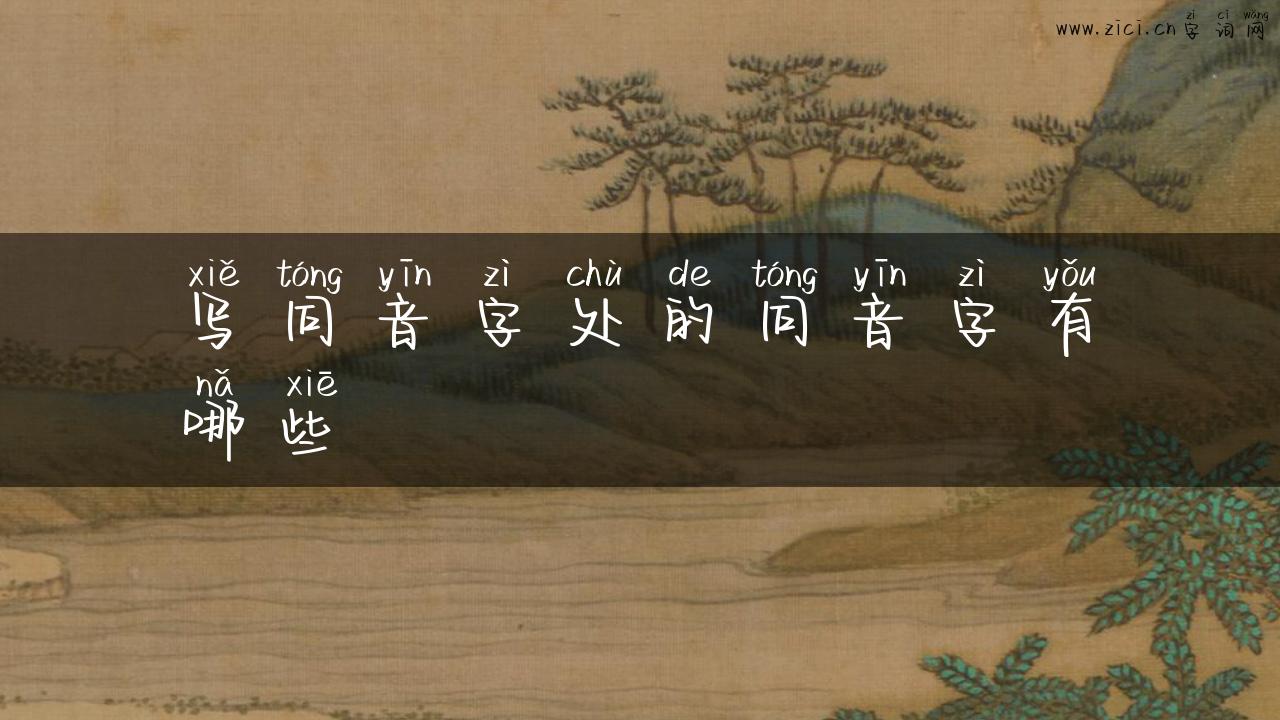 zì cí wǎng
www.zici.cn 字 词 网
xiě tóng yīn zì chù de tóng yīn zì yǒu
写 同 音 字 处 的 同 音 字 有
nǎ xiē
哪 些